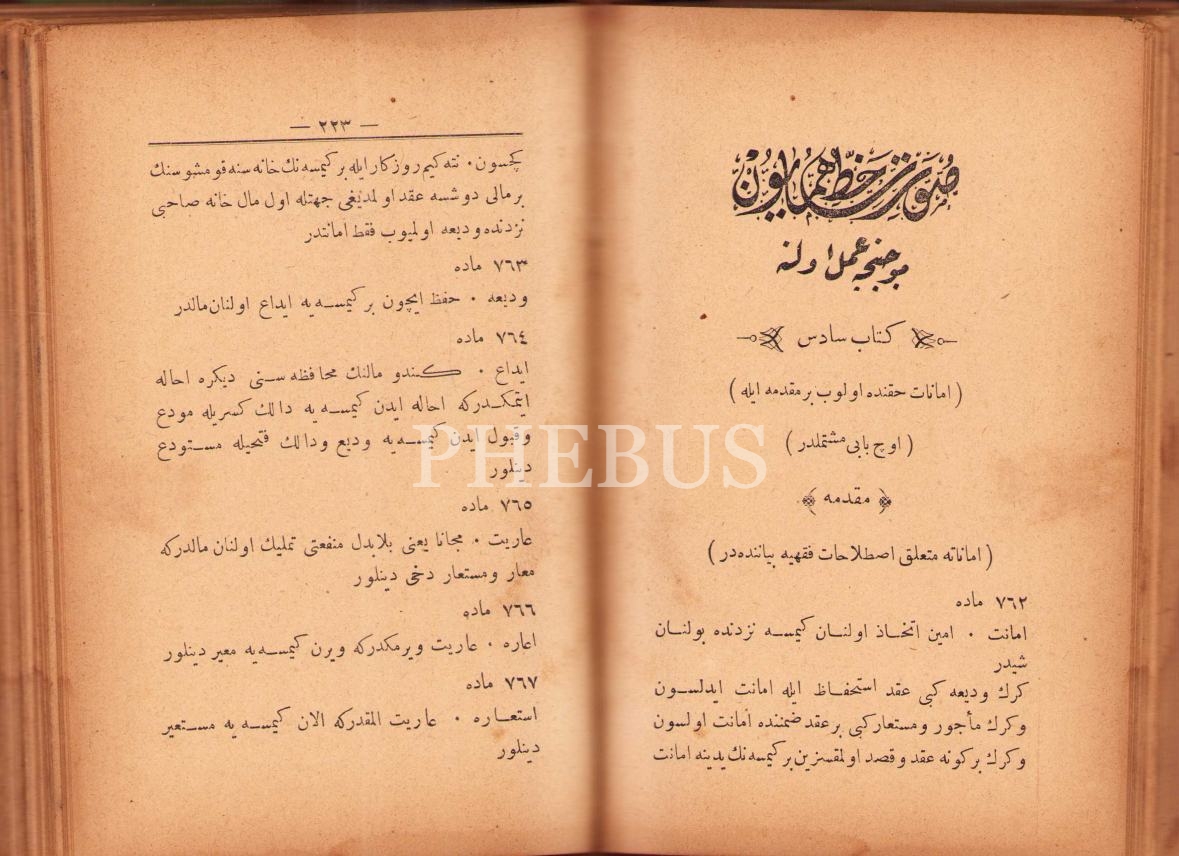 صورت خط همايون
موجبنجه عمل اولنه
كتاب سادس
( امانات حقنده اولوب بر مقدمه ايله )
( اوچ بابى مشتملدر )
مقدمه
( اماناته متعلق اصطلاحات فقهيه بياننده در )
٧٦٢ ماده
امانت ٠ امين اتخـاذ اولنـان كيمسه نزدنده بولنـان
شيدر
كرك وديعه كبى عقد استحفـاظ ايله امانت ايدلسـون
وكرك مأجور ومستعار كبى بر عقد ضمننده امانت اولسون
وكرك بر كونه عقد وقصد اولمقسزين بر كيمسه نك يدينه امانت
— ٢٢٣ —
كچسون ٠ نته كيم روزكار ايله بر كيمسه نك خانه سنه قومشوسنك
بر مالى دوشسه عقد اولمديغى جهتله اول مال خانه صاحبى
نزدنده وديعه اولميوب فقط امانتدر
٧٦٣ ماده
وديعه ٠ حفظ ايچون بر كيمسـه يه ايداع اولنان مالدر
٧٦٤ ماده
ايداع ٠ كندو مالنك محافظه سنى ديكره احاله
ايتمكدركه احاله ايدن كيمسه يه دالك كسريله مودع
وقبول ايدن كيمسـه يه وديع ودالك فتحيله مستودع
دينلور
PHEBUS
٧٦٥ ماده
عاريت ٠ مجانا يعنى بلابدل منفعتى تمليك اولنان مالدركه
معار ومستعار دخى دينلور
٧٦٦ ماده
اعاره ٠ عاريت ويرمكدركه ويرن كيمسه يه معير دينلور
٧٦٧ ماده
استعـاره ٠ عاريت المقدركه الان كيمسـه يه مستعير
دينلور